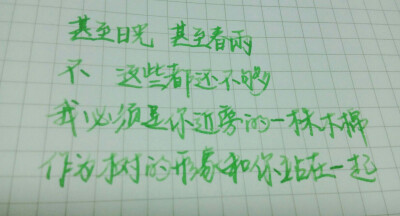 甚至日光 甚至春雨
不 这些都还不够
我必须是你近旁的一株木棉
作为树的形象和你站在一起